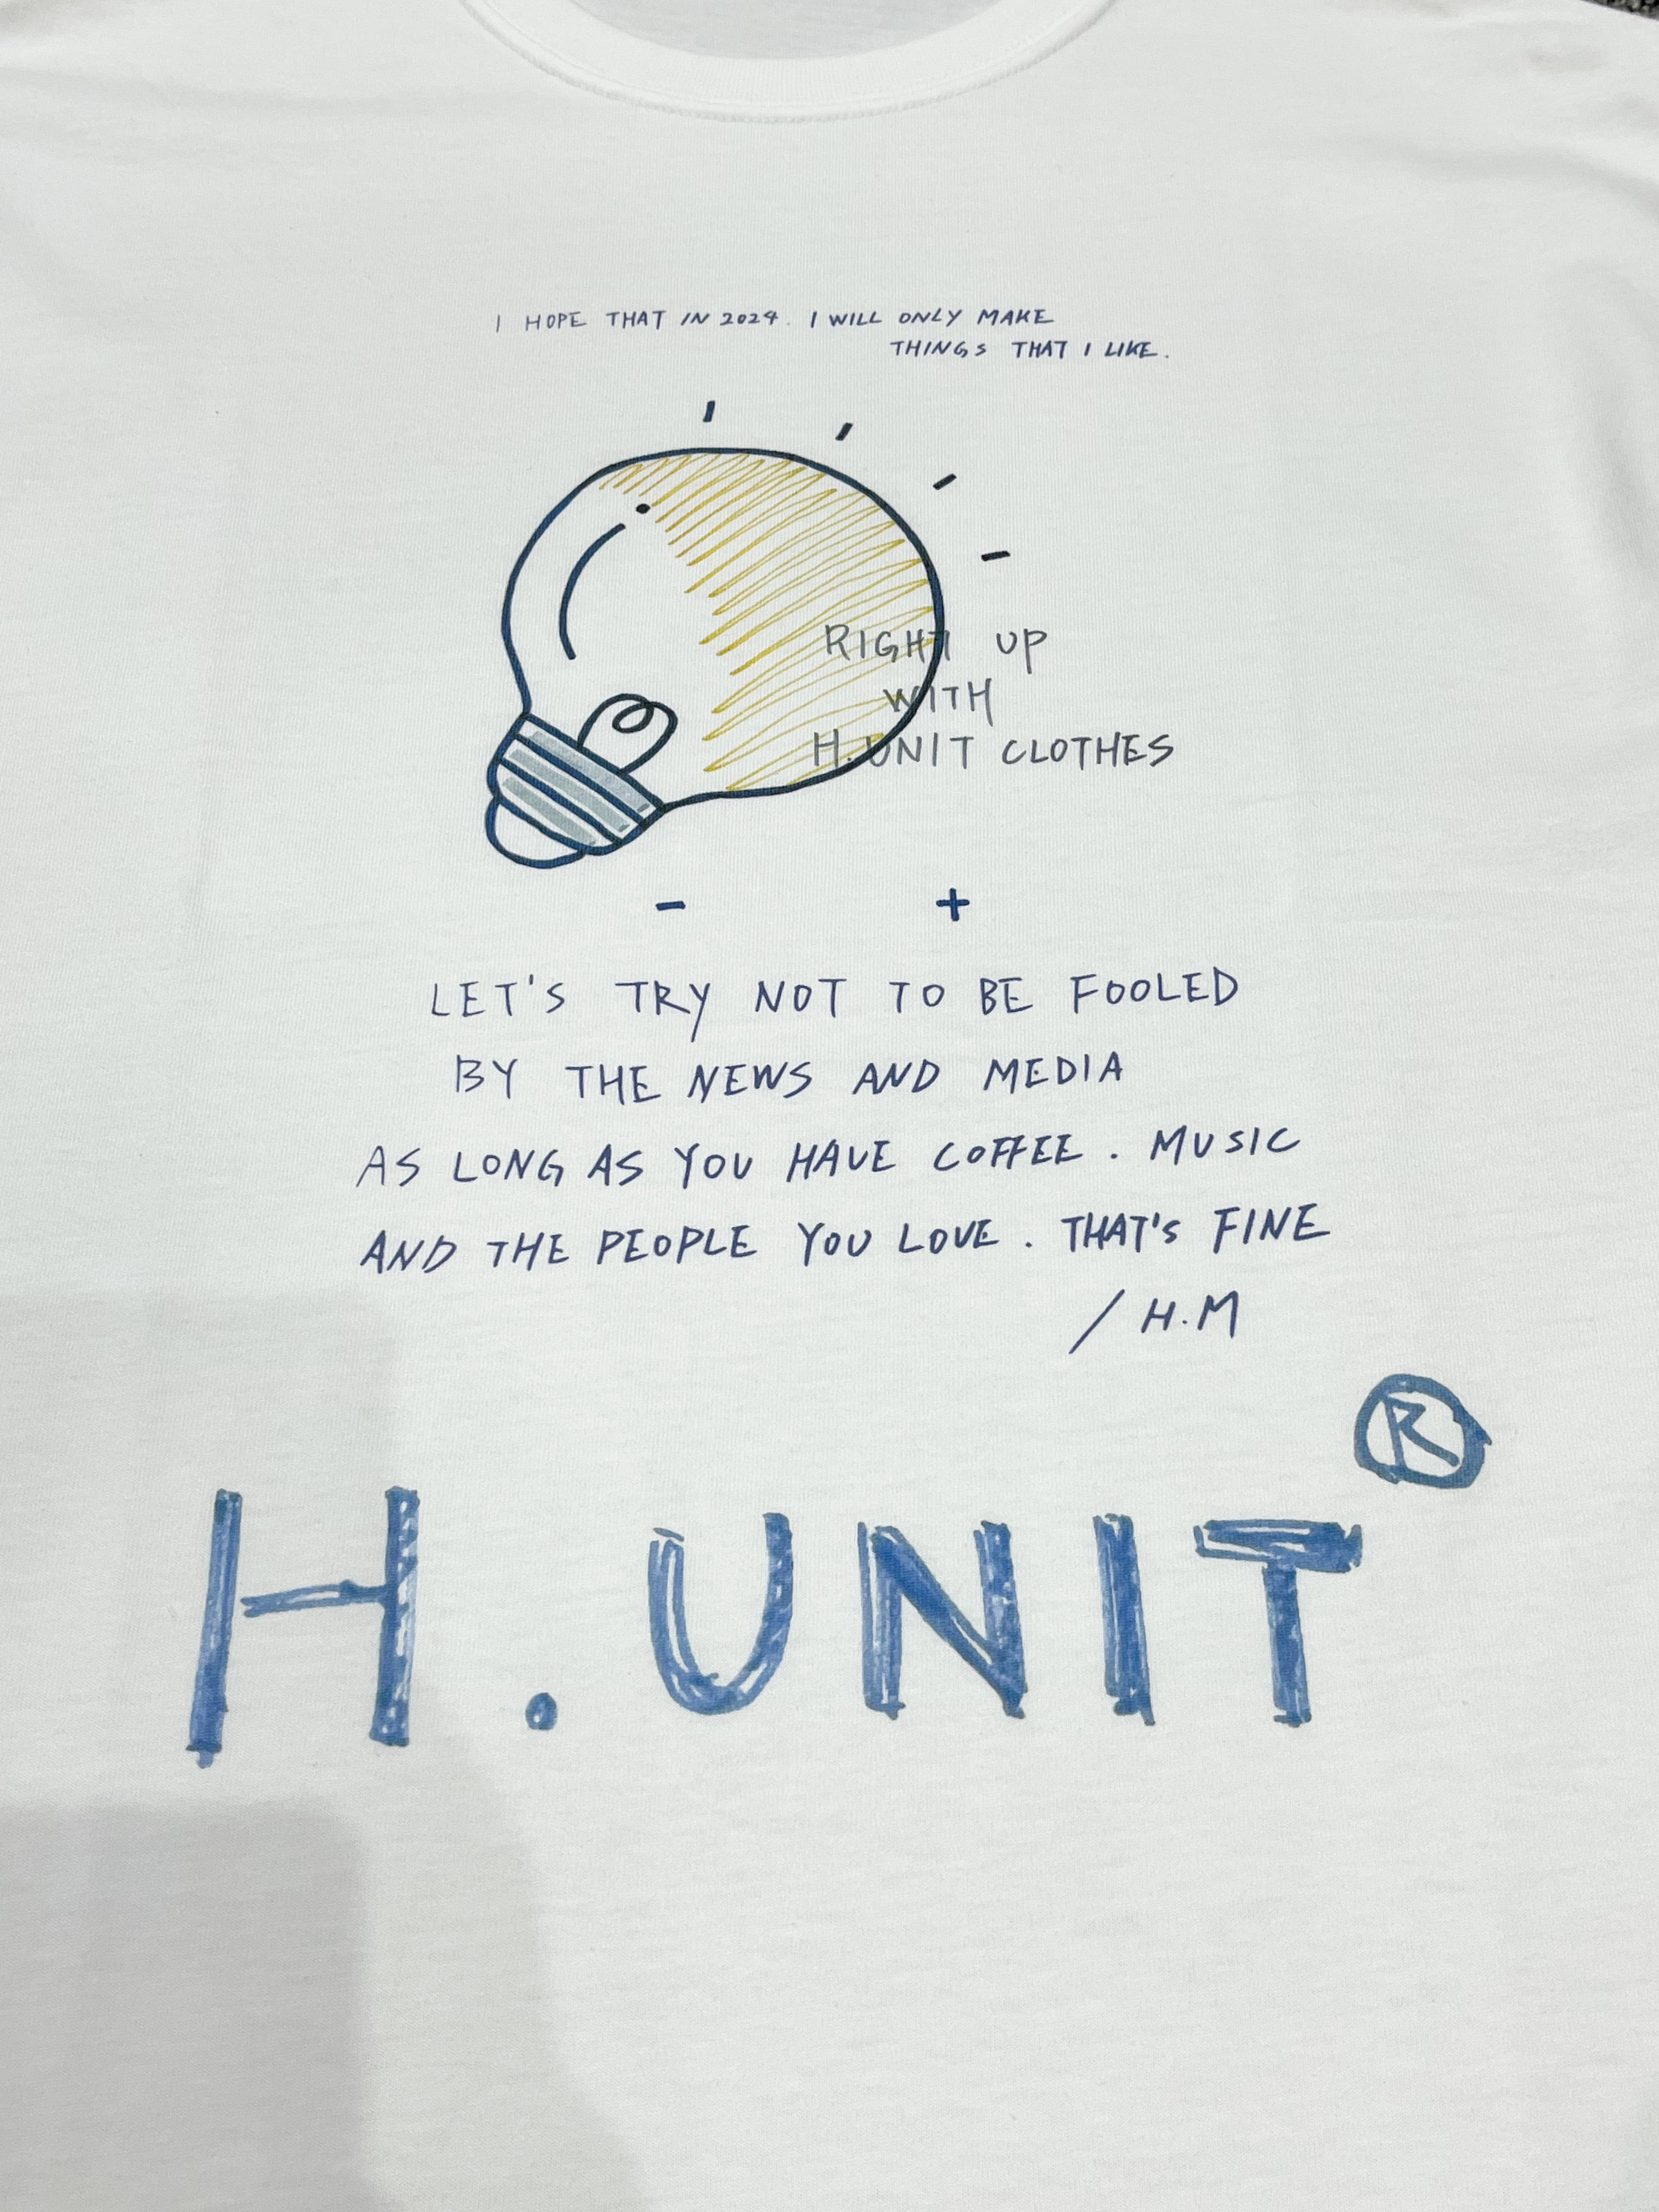 I HOPE THAT IN 2024. I WILL ONLY MAKE
THINGS THAT I LIKE.
RIGHT UP
WITH
H.UNIT CLOTHES
- +
LET'S TRY NOT TO BE FOOLED
BY THE NEWS AND MEDIA
AS LONG AS YOU HAVE COFFEE. MUSIC
AND THE PEOPLE YOU LOVE. THAT'S FINE
/ H.M
H.UNIT®